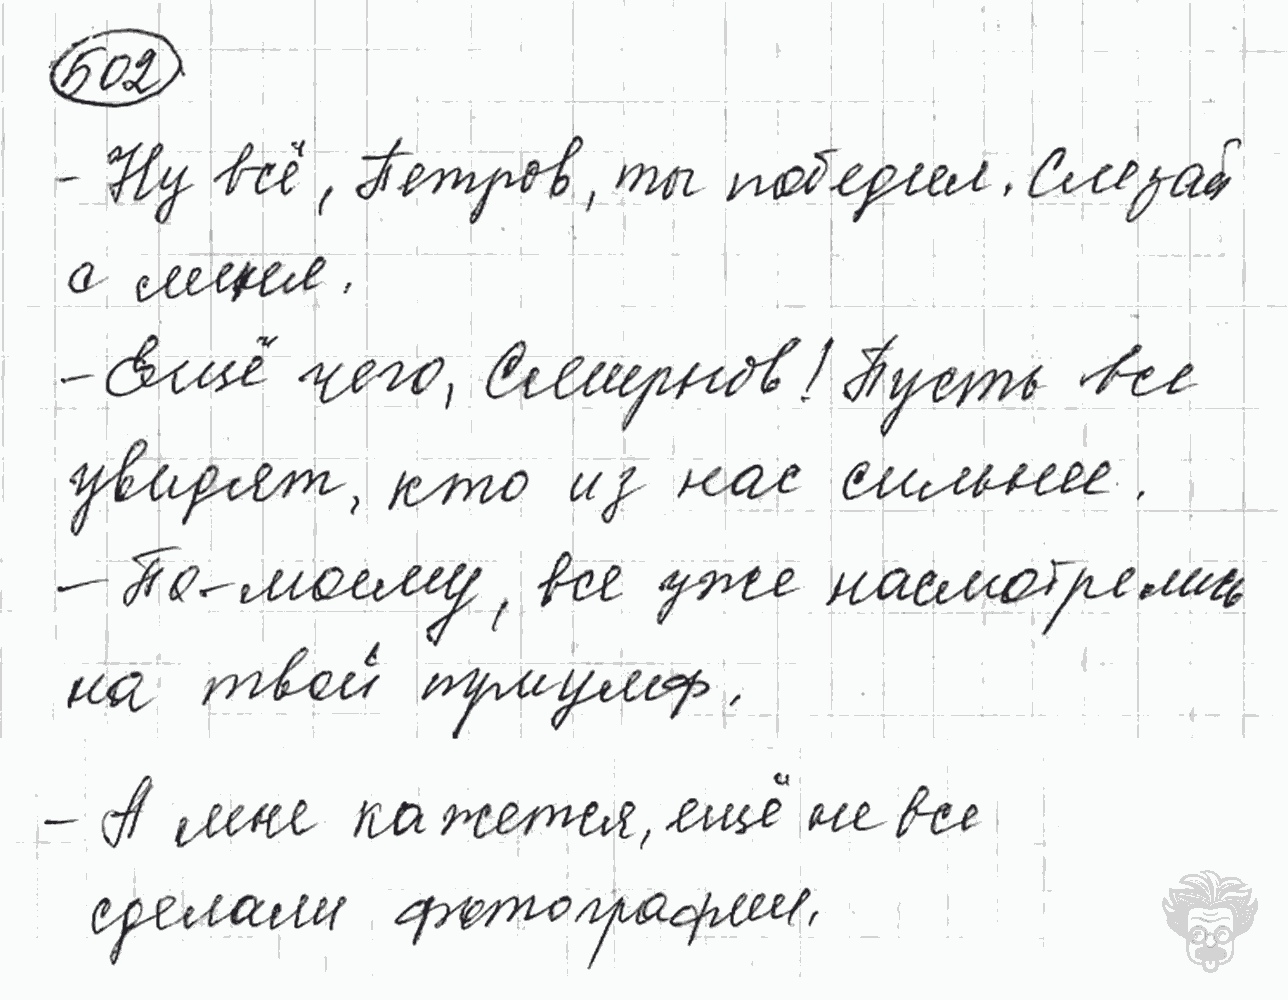 502
- Ну всё, Петров, ты победил. Слезай
с меня.
- Ещё чего, Смирнов! Пусть все
увидят, кто из нас сильнее.
- По-моему, все уже насмотрелись
на твой триумф.
- А мне кажется, ещё не все
сделали фотографии.